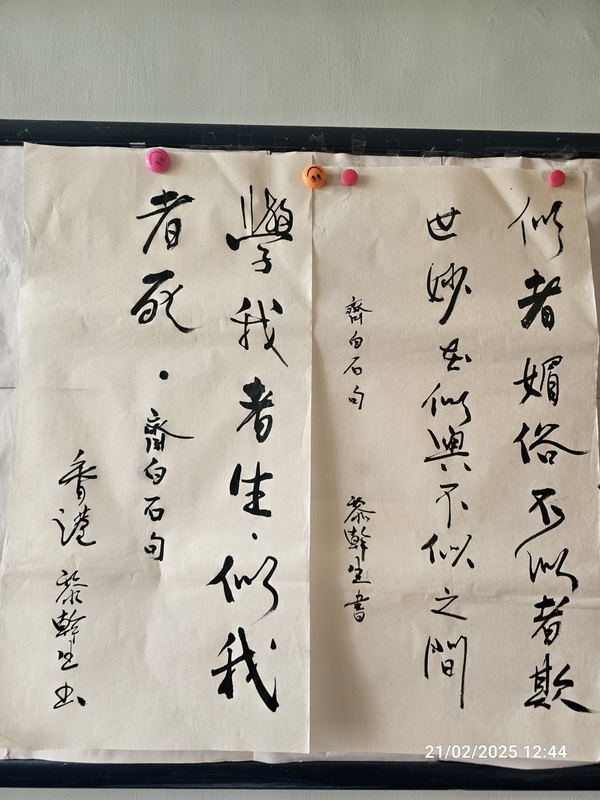 似者媚俗不似者欺
世妙在似與不似之間
齊白石句
黎幹生書
學我者生．似我
者死．齊白石句
香港 黎幹生書
21/02/2025 12:44